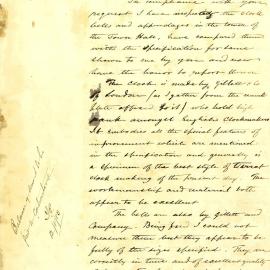 In compliance with your
request I have inspected the clock
bells and appendages in the tower of
the Town Hall, have compared them
with the specification for same
shown to me by you and now
have the honor to report thereon.
The clock is made by Gillett & Co
of London (as I gather from the name
plate affixed to it) who hold high
rank amongst English Clockmakers
It embodies all the special features of
improvement which are mentioned
in the specification and generally is
a specimen of the best style of turret
clock making of the present day. The
workmanship and material both
appear to be excellent.
The bells are also by Gillett and
Company. Being fixed I could not
measure them but they appear to be
fully of the sizes specified. They are
correctly in tune and of excellent quality